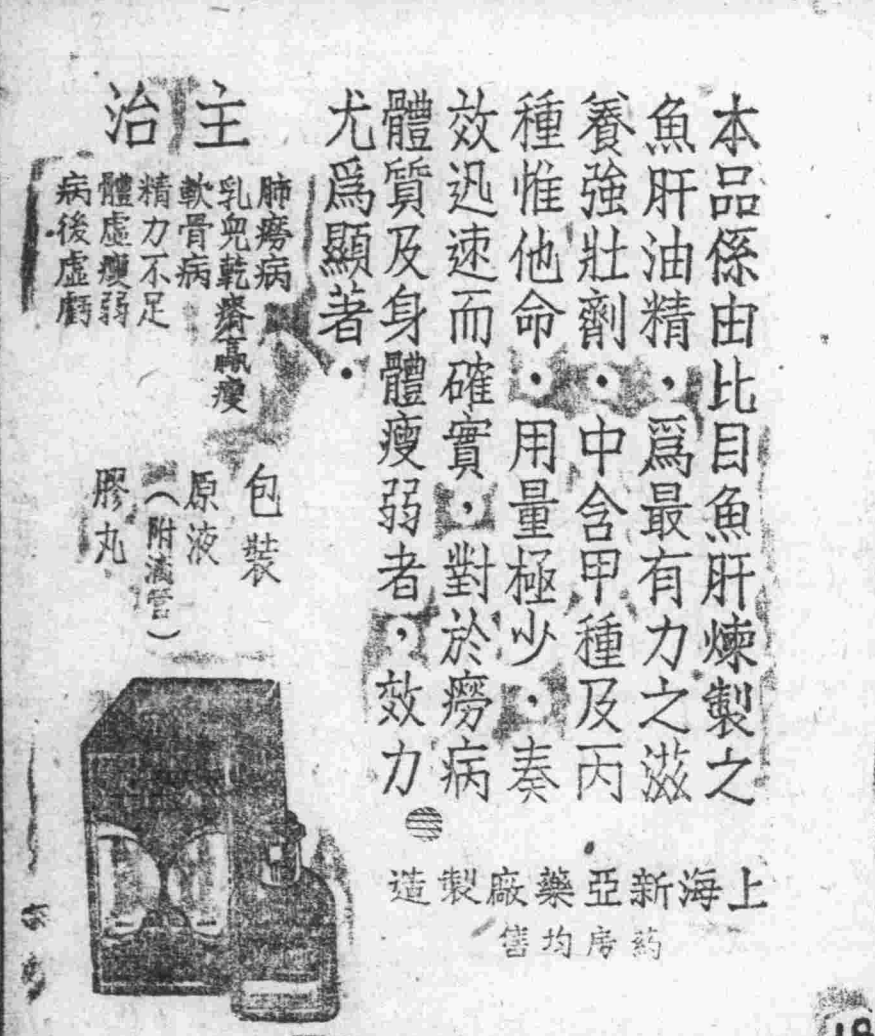 本品係由比目魚肝煉製之
魚肝油精，爲最有力之滋
養強壯劑・中含甲種及丙
種惟他命・用量極少、奏
效迅速而確實，對於癆病
體質及身體瘦弱者，效力
尤爲顯著・
主治
肺癆病
乳兒乾瘠羸瘦
軟骨病
精力不足
體虛瘦弱
病後虛虧
包裝
原液
（附滴管）
膠丸
上海新亞藥廠製造
药房均售